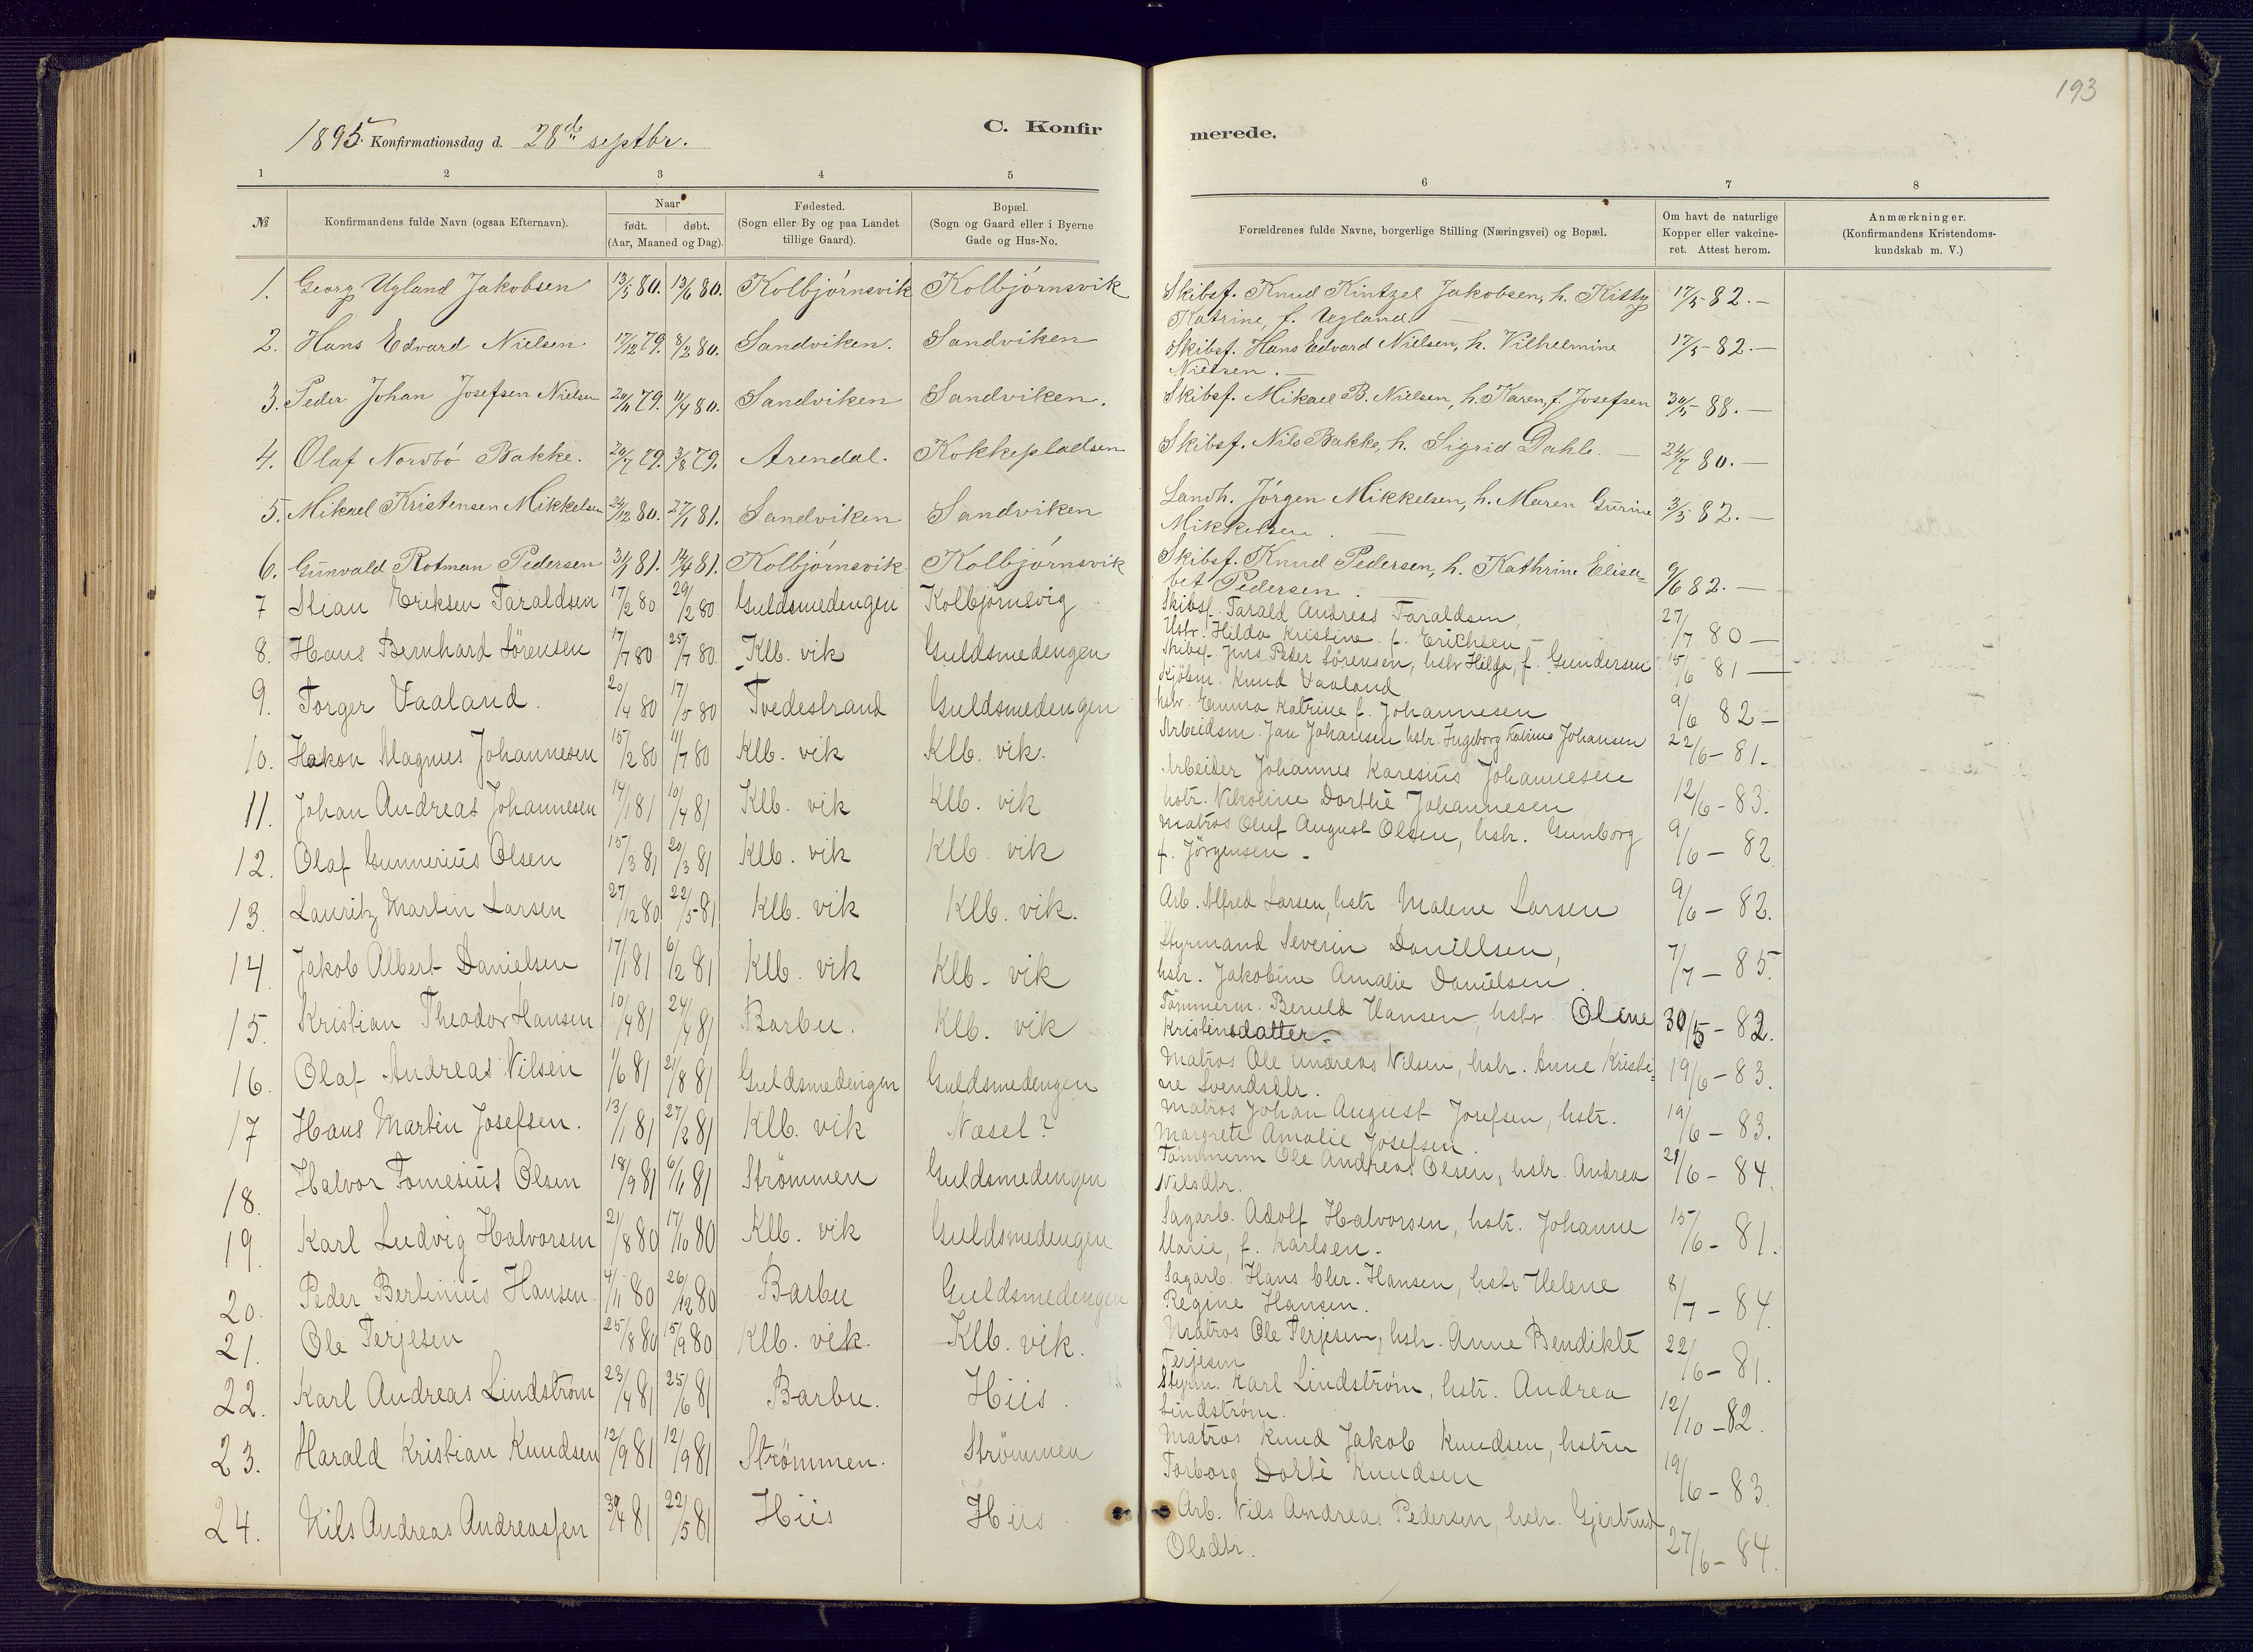 193
1895. Konfirmationsdag d. 28de septbr.
C. Konfirmerede.
1 2 3 4 5 6 7 8
№ Konfirmandens fulde Navn (ogsaa Efternavn). Naar født. døbt. (Aar, Maaned og Dag). Fødested. (Sogn eller By og paa Landet tillige Gaard). Bopæl. (Sogn og Gaard eller i Byerne Gade og Hus-No. Forældrenes fulde Navne, borgerlige Stilling (Næringsvei) og Bopæl. Om havt de naturlige Kopper eller vakcineret. Attest herom. Anmærkninger. (Konfirmandens Kristendomskundskab m. V.)
1. Georg Ugland Jakobsen 13/5 80. 13/6 80. Kolbjörnsvik Kolbjörnsvik Skibsf. Knud Kintzel Jakobsen, h. Kitty 17/5 82. —
Katrine, f. Ugland. —
2. Hans Edvard Nielsen 17/12 79. 8/3 80. Sandviken. Sandviken Skibsf. Hans Edvard Nielsen, h. Vilhelmine 17/5 82. —
Nielsen. —
3. Peder Johan Josefsen Nielsen 20/11 79. 11/4 80. Sandviken Sandviken. Skibsf. Mikael B. Nielsen, h. Karen, f. Josefsen 30/5 88. —
4. Olaf Nordbö Bakke. 20/7 79. 3/8 79. Arendal. Kokkepladsen Skibsf. Nils Bakke, h. Sigrid Dahle. — 24/7 80. —
5. Mikael Kristensen Mikkelsen 24/12 80. 27/1 81. Sandviken Sandviken Landh. Jörgen Mikkelsen, h. Maren Gurine 3/5 82. —
Mikkelsen. —
6. Gunvald Rotman Pedersen 31/1 81. 14/4 81. Kolbjörnsvik Kolbjörnsvik Skibsf. Knud Pedersen, h. Kathrine Elisa- 9/6 82. —
bet Pedersen. —
7 Stian Eriksen Taraldsen 17/2 80 29/2 80 Guldsmedengen Kolbjörnsvig Skibsf. Tarald Andreas Taraldsen, 27/7 80 —
Hstr. Hilda Kristine f. Erichsen —
8. Hans Bernhard Sörensen 17/7 80 25/7 80. Klb. vik Guldsmedengen Skibsf. Jens Peder Sörensen, hstr Helga, f. Gundersen 15/6 81 —
9. Torger Vaaland. 20/4 80 17/5 80 Tvedestrand Guldsmedengen Kjöbm. Knud Vaaland
hstr. Emma Katrine f. Johannesen 9/6 82 —
10. Hakon Magnus Johannesen 15/2 80 11/7 80 Klb. vik Klb. vik. Arbeidsm. Jan Johansen hstr. Ingeborg Katrine Johansen 22/6 - 81. -
11. Johan Andreas Johannesen 14/1 81 10/4 81 Klb. vik Klb. vik Arbeider Johannes Karesius Johannesen
hstr. Nikoline Dorthe Johannesen 12/6 - 83.
12. Olaf Gunnerius Olsen 15/3 81 20/3 81 Klb. vik Klb. vik Matros Oluf August Olsen, hstr. Gunborg 9/6 — 82.
f. Jörgensen -
13. Lauritz Martin Larsen 27/12 80 22/5 81 Klb. vik Klb. vik. Arb. Alfred Larsen, hstr Malene Larsen 9/6 — 82.
14. Jakob Albert Danielsen 17/1 81 6/2 81 Klb. vik Klb. vik Styrmand Severin Daniellsen, 7/7 — 85.
hstr. Jakobine Amalie Danielsen.
15. Kristian Theodor Hansen 10/4 81 24/4 81 Barbu. Klb. vik Tömmerm. Berulf Hansen, hstr Oline 30/5 - 82.
Kristinsdatter.
16. Olaf Andreas Nilsen 1/6 81 21/8 81 Guldsmedengen Guldsmedengen Matros Ole Andreas Nilsen, hstr. Anne Kristi- 19/6 - 83.
ne Svendsdtr.
17 Hans Martin Josefsen. 13/1 81 27/2 81 Klb. vik Næsel? Matros Johan August Josefsen, hstr. 19/6 — 83.
Margrete Amalie Josefsen.
18. Halvor Tomesius Olsen 18/9 81 6/11 81 Strömmen Guldsmedengen Tömmerm Ole Andreas Olsen, hstr. Andrea 21/6 - 84.
Nilsdtr.
19. Karl Ludvig Halvorsen 21/8 80 17/10 80 Klb. vik Guldsmedengen Sagarb. Adolf Halvorsen, hstr. Johanne 15/6 - 81.
Marie, f. Karlsen -
20. Peder Bertinius Hansen. 4/11 80 26/12 80 Barbu Guldsmedengen Sagarb. Hans Chr. Hansen, hstr Helene 8/7 — 84.
Regine Hansen.
21. Ole Terjesen 25/8 80 15/9 80 Klb. vik. Klb. vik. Matros Ole Terjesen, hstr. Anne Bendikte 22/6 - 81.
Terjesen
22. Karl Andreas Lindström 23/4 81 25/6 81 Barbu. Hiis. Styrm. Karl Lindström, hstr. Andrea 12/10 - 82.
Lindström.
23. Harald Kristian Knudsen 12/9 81 12/9 81 Strömmen. Strömmen Matros Knud Jakob Knudsen, hstru
Torborg Dorte Knudsen 19/6 - 83.
24. Nils Andreas Andreassen 30/4 81 22/5 81 Hiis Hiis. Arb. Nils Andreas Pedersen, hstr. Gjertrud
Olsdtr. 27/6 - 84.